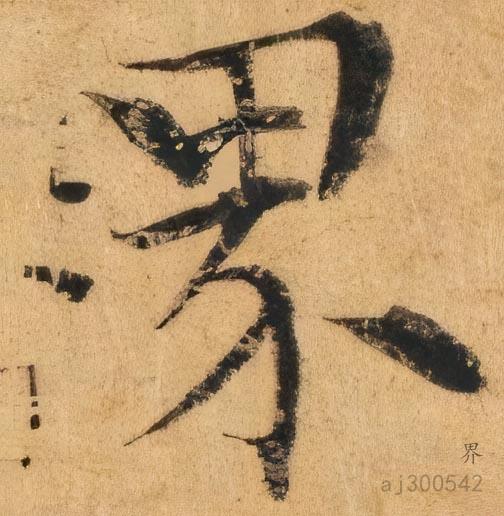 界
界
aj300542